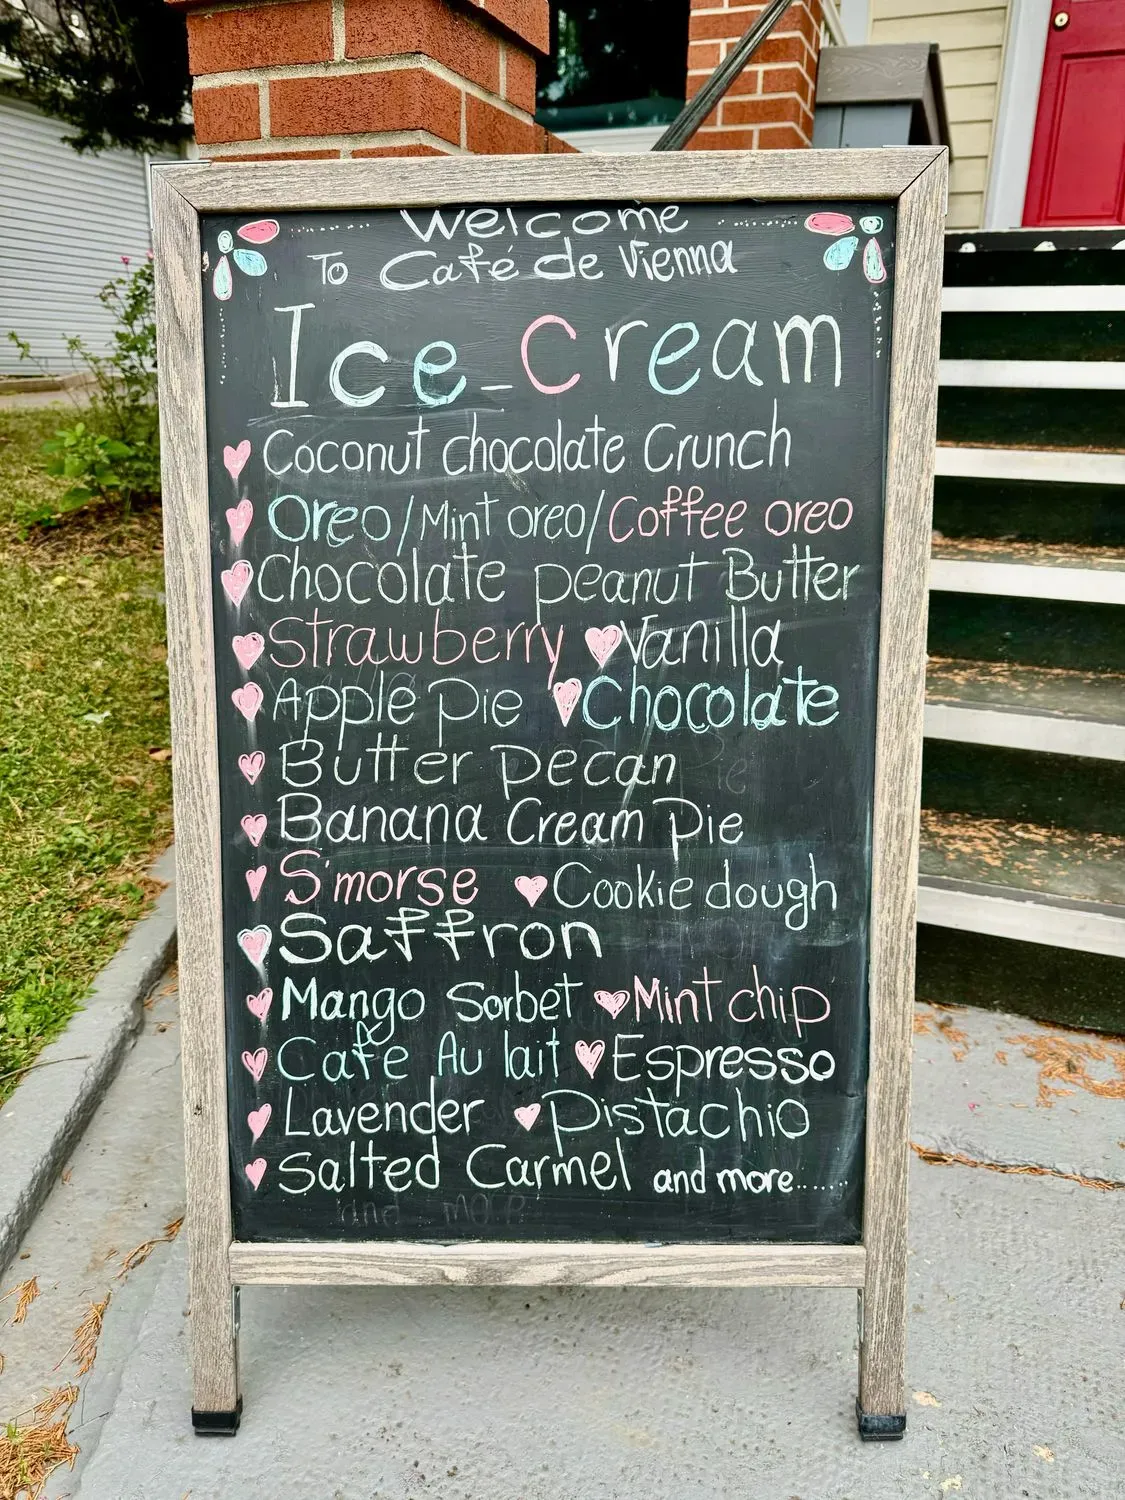 Welcome
To Café de Vienna
Ice_Cream
Coconut chocolate Crunch
Oreo/Mint oreo/Coffee oreo
Chocolate peanut Butter
Strawberry Vanilla
Apple pie Chocolate
Butter pecan
Banana Cream Pie
S'morse Cookie dough
Saffron
Mango Sorbet Mint chip
Cafe Au lait Espresso
Lavender Pistachio
Salted Carmel and more.......
and more